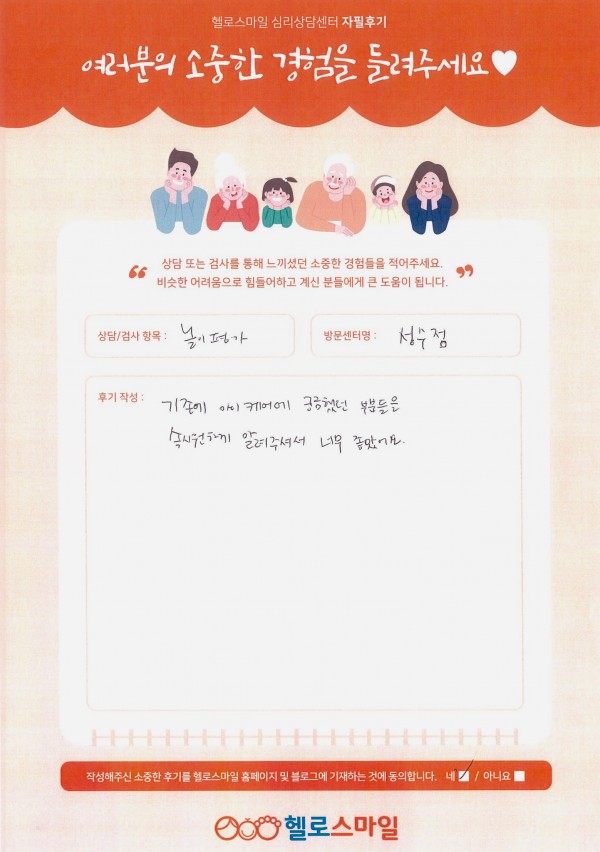 헬로스마일 심리상담센터 자필후기
여러분의 소중한 경험을 들려주세요♥
상담 또는 검사를 통해 느끼셨던 소중한 경험들을 적어주세요.
비슷한 어려움으로 힘들어하고 계신 분들에게 큰 도움이 됩니다.
상담/검사 항목 : 놀이평가
방문센터명 : 성수점
후기 작성 : 기존에 아이케어에 궁금했던 부분들을
속시원하게 알려주셔서 너무 좋았어요.
작성해주신 소중한 후기를 헬로스마일 홈페이지 및 블로그에 기재하는 것에 동의합니다. 네 / 아니요
헬로스마일